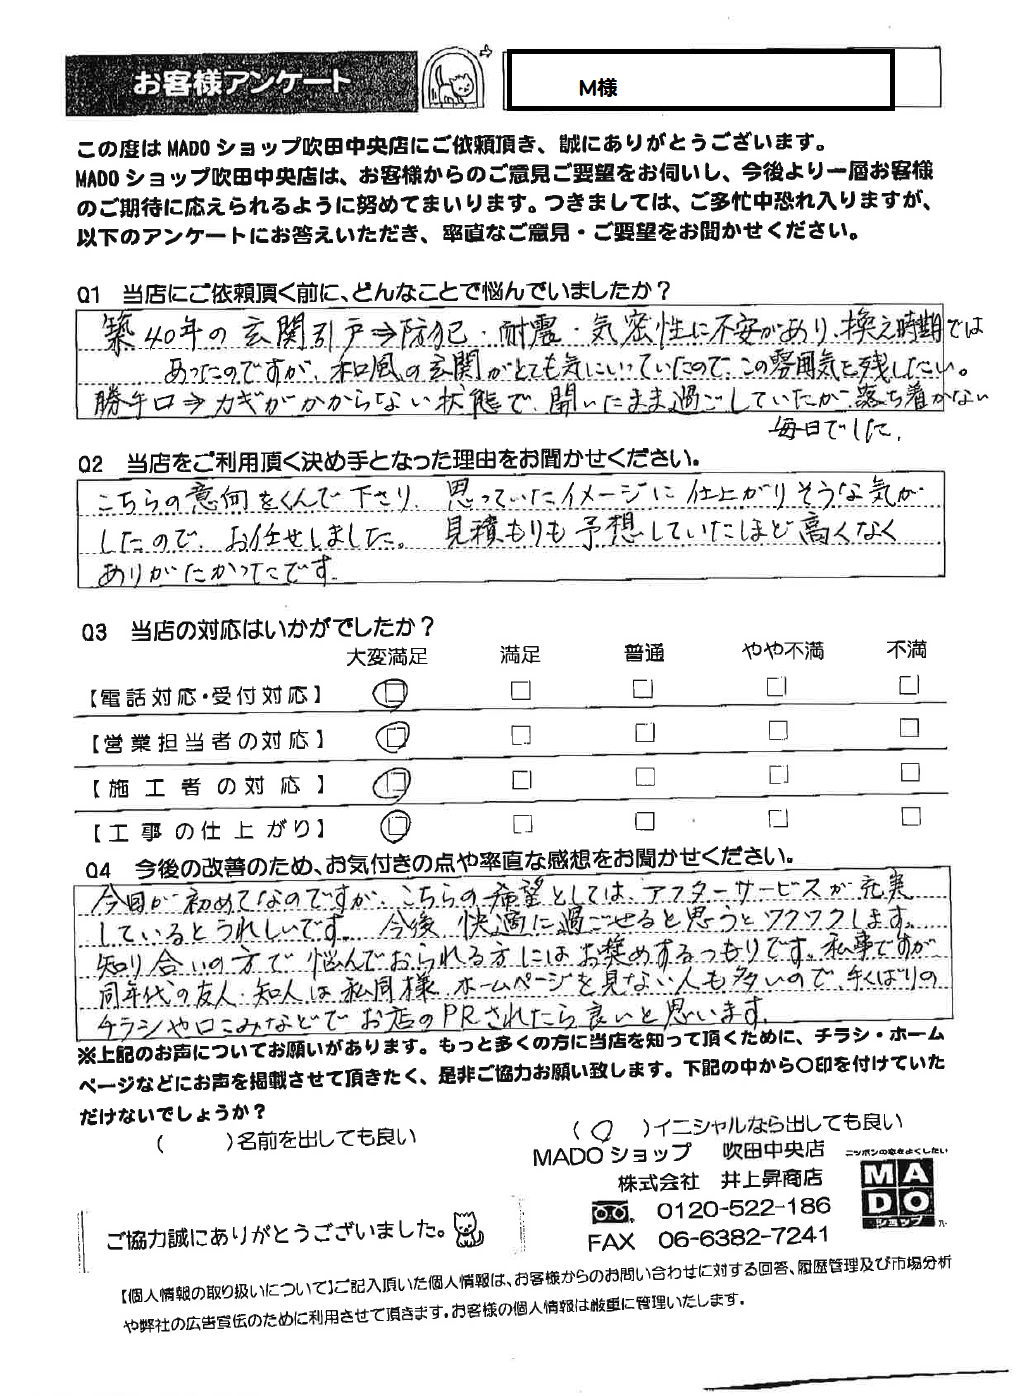 お客様アンケート
M様
この度はMADOショップ吹田中央店にご依頼頂き、誠にありがとうございます。
MADOショップ吹田中央店は、お客様からのご意見ご要望をお伺いし、今後より一層お客様
のご期待に応えられるように努めてまいります。つきましては、ご多忙中恐れ入りますが、
以下のアンケートにお答えいただき、率直なご意見・ご要望をお聞かせください。
Q1 当店にご依頼頂く前に、どんなことで悩んでいましたか？
築40年の玄関引戸⇒防犯・耐震・気密性に不安があり、換え時期では
あったのですが、和風の玄関がとても気にいっていたので、この雰囲気を残したい。
勝手口⇒カギがかからない状態で、開いたまま過ごしていたが、落ち着かない
毎日でした。
Q2 当店をご利用頂く決め手となった理由をお聞かせください。
こちらの意向をくんで下さり、思っていたイメージに仕上がりそうな気が
したので、お任せしました。見積もりも予想していたほど高くなく
ありがたかったです。
Q3 当店の対応はいかがでしたか？
大変満足 満足 普通 やや不満 不満
【電話対応・受付対応】
【営業担当者の対応】
【施工者の対応】
【工事の仕上がり】
Q4 今後の改善のため、お気付きの点や率直な感想をお聞かせください。
今回が初めてなのですが、こちらの希望としては、アフターサービスが充実
しているとうれしいです。今後、快適に過ごせると思うとワクワクします。
知り合いの方で悩んでおられる方にはお奨めするつもりです。私事ですが
同年代の友人・知人は私同様、ホームページを見ない人も多いので、手くばりの
チラシや口こみなどでお店のPRされたら良いと思います。
※上記のお声についてお願いがあります。もっと多くの方に当店を知って頂くために、チラシ・ホーム
ページなどにお声を掲載させて頂きたく、是非ご協力お願い致します。下記の中から〇印を付けていた
だけないでしょうか？
（ ）名前を出しても良い
（〇）イニシャルなら出しても良い
MADOショップ 吹田中央店
株式会社 井上昇商店
0120-522-186
FAX 06-6382-7241
ニッポンの窓をよくしたい
MADO
ショップ
ご協力誠にありがとうございました。
【個人情報の取り扱いについて】ご記入頂いた個人情報は、お客様からのお問い合わせに対する回答、履歴管理及び市場分析
や弊社の広告宣伝のために利用させて頂きます。お客様の個人情報は厳重に管理いたします。